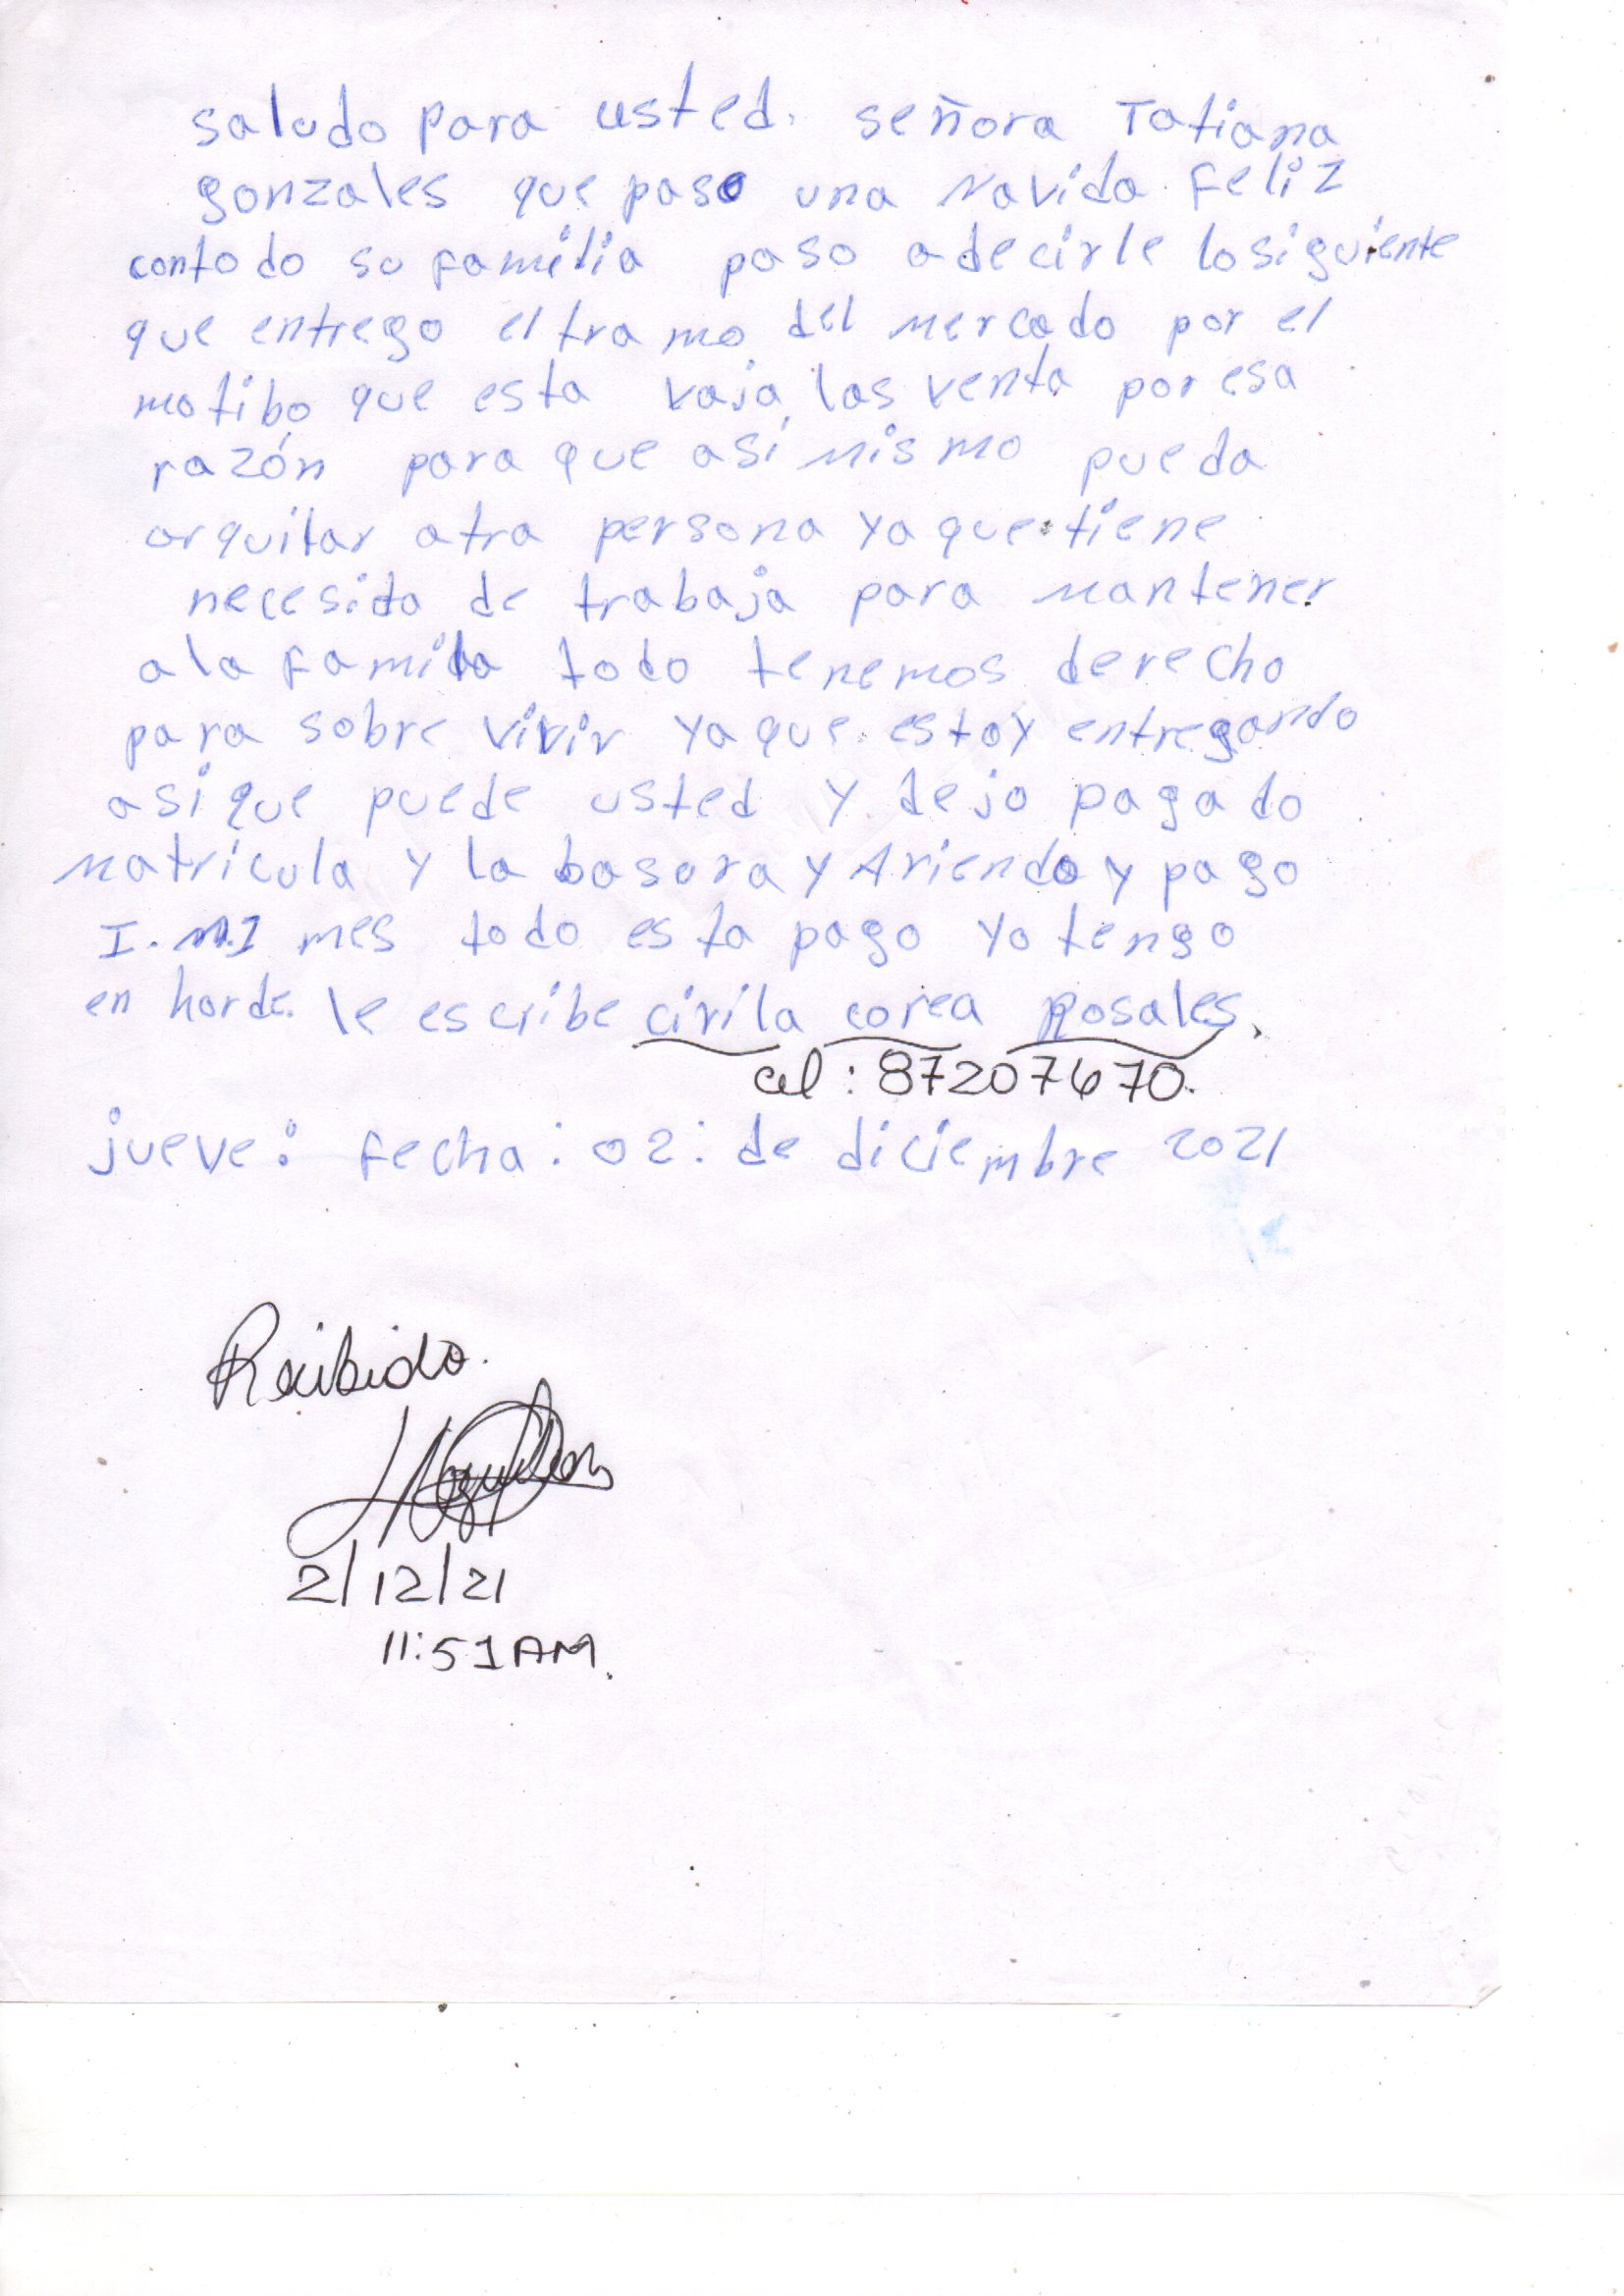 saludo para usted. señora Tatiana
gonzales que paso una Navida feliz
contodo su familia paso adecirle losiguiente
que entrego el tramo del mercado por el
motibo que esta vaja las venta por esa
razón para que asi mismo pueda
arquilar atra persona ya que tiene
necesida de trabaja para mantener
ala familia todo tenemos derecho
para sobre vivir ya que estoy entregando
asi que puede usted y dejo pagado
matricula y la basura y Ariendo y pago
I.M.I mes todo esta pago yo tengo
en horde. le escribe civila corea Rosales.
cel: 87207670.
jueve: fecha: 02: de diciembre 2021
Recibido.
2/12/21
11:51 AM.